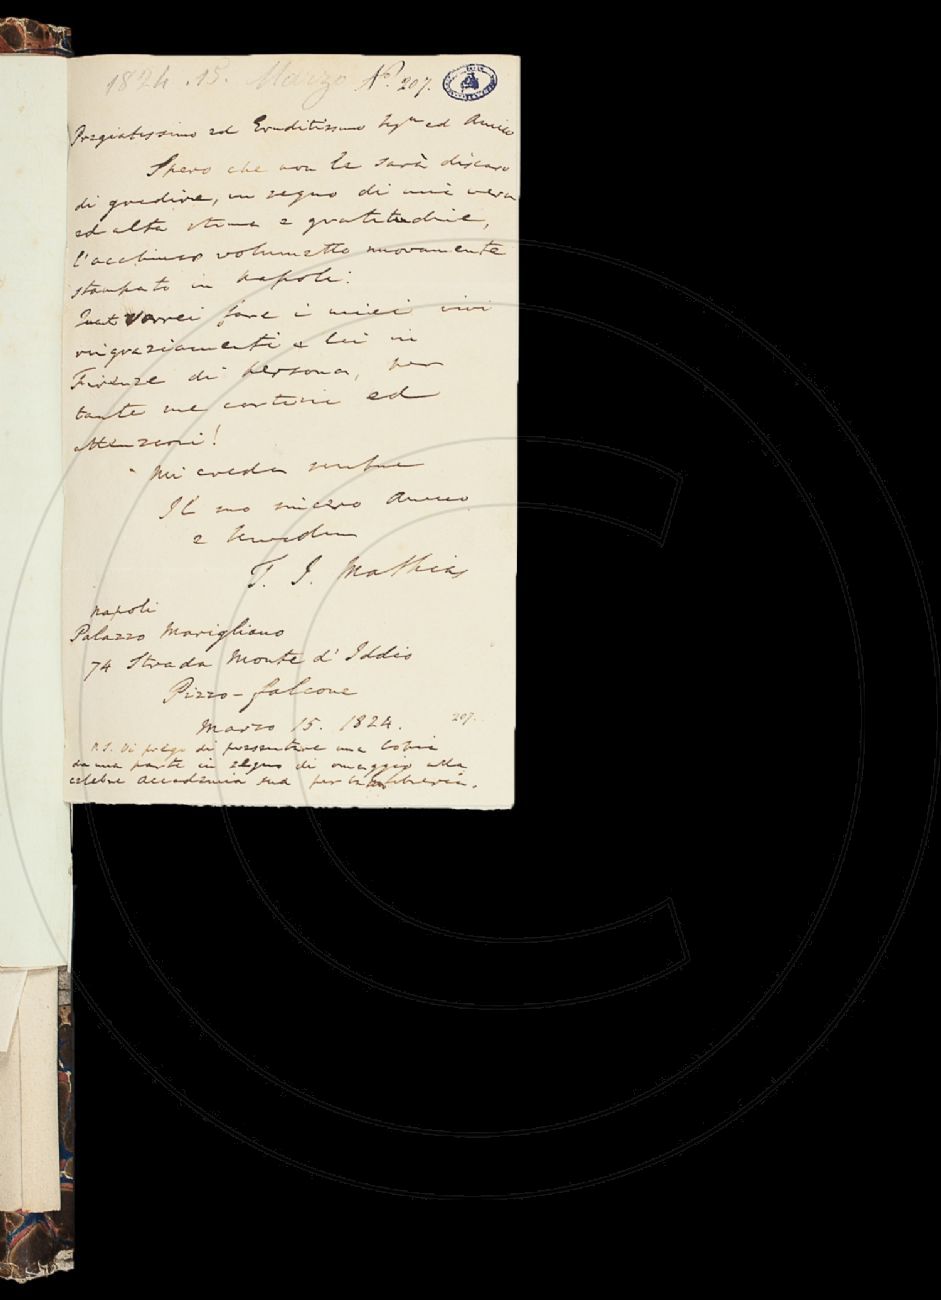 1824. 15. Marzo No. 207.
Pregiatissimo ed Eruditissimo Sigr. ed Amico
Spero che non le sarà discaro
di gradire, in segno di mia vera
ed alta stima e gratitudine,
l'acchiuso volumetto nuovamente
stampato in Napoli.
vorrei fare i miei vivi
ringraziamenti a lei in
Firenze di persona, per
tante sue cortesie ed
attenzioni!
Mi creda sempre
Il suo sincero Amico
e Servidore
T. J. Mathias
Napoli
Palazzo Marigliano
74 Strada Monte d' Iddio
Pizzo-falcone
Marzo 15. 1824.
207.
P.S. Vi prego di presentare una Copia
da mia parte in segno di omaggio alla
celebre Accademia sua per la libreria.